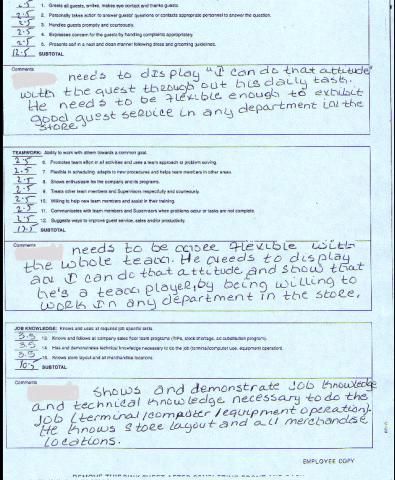 2.5 1. Greets all guests, smiles, makes eye contact and thanks guests.
2.5 2. Personally takes action to answer guests' questions or contacts appropriate personnel to answer the question.
2.5 3. Handles guests promptly and courteously.
2.5 4. Expresses concern for the guests by handling complaints appropriately.
2.5 5. Presents self in a neat and clean manner following dress and grooming guidelines.
12.5 SUBTOTAL
Comments
needs to display "I can do that attitude"
with the guest through out his daily task.
He needs to be flexible enough to exhibit
good guest service in any department in the
store.
TEAMWORK: Ability to work with others towards a common goal.
2.5 6. Promotes team effort in all activities and uses a team approach to problem solving.
2.5 7. Flexible in scheduling, adapts to new procedures and helps team members in other areas.
2.5 8. Shows enthusiasm for the company and its programs.
2.5 9. Treats other team members and Supervisors respectfully and courteously.
2.5 10. Willing to help new team members and assist in their training.
2.5 11. Communicates with team members and Supervisors when problems occur or tasks are not complete.
2.5 12. Suggests ways to improve guest service, sales and/or productivity.
17.5 SUBTOTAL
Comments
needs to be more flexible with
the whole team. He needs to display
an I can do that attitude and show that
he's a team player, by being willing to
work in any department in the store.
JOB KNOWLEDGE: Knows and uses all required job specific skills.
3.5 13. Knows and follows all company sales floor team programs (TIPs, stock shortage, ad substitution program).
3.5 14. Has and demonstrates technical knowledge necessary to do the job (terminal/computer use, equipment operation).
3.5 15. Knows store layout and all merchandise locations.
10.5 SUBTOTAL
Comments
shows and demonstrate Job knowledge
and technical knowledge necessary to do the
Job (terminal/computer/equipment operation).
He knows store layout and all merchandise
locations.
EMPLOYEE COPY